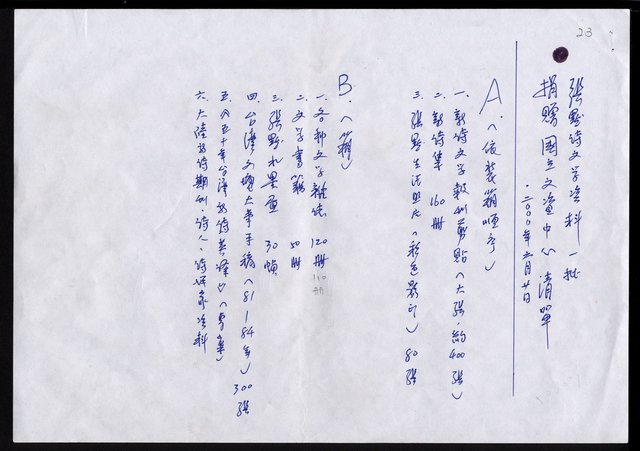 23
張默詩文學資料一批
捐贈國立文資中心清單
·二000年六月廿日
A.(依裝箱順序)
一、新詩文學報刊剪貼(大張,約400張)
二、新詩集 160冊
三、張默生活照片(彩色影印)80張
B.(箱)
一、各種文學雜誌 120冊
110冊
二、文學書籍 50冊
三、張默水墨畫 30幀
四、台灣文壇大事手稿(81—84年)300張
五、八五十年台灣新詩英譯》(專集)
六、大陸新詩期刊、詩人、詩評家資料